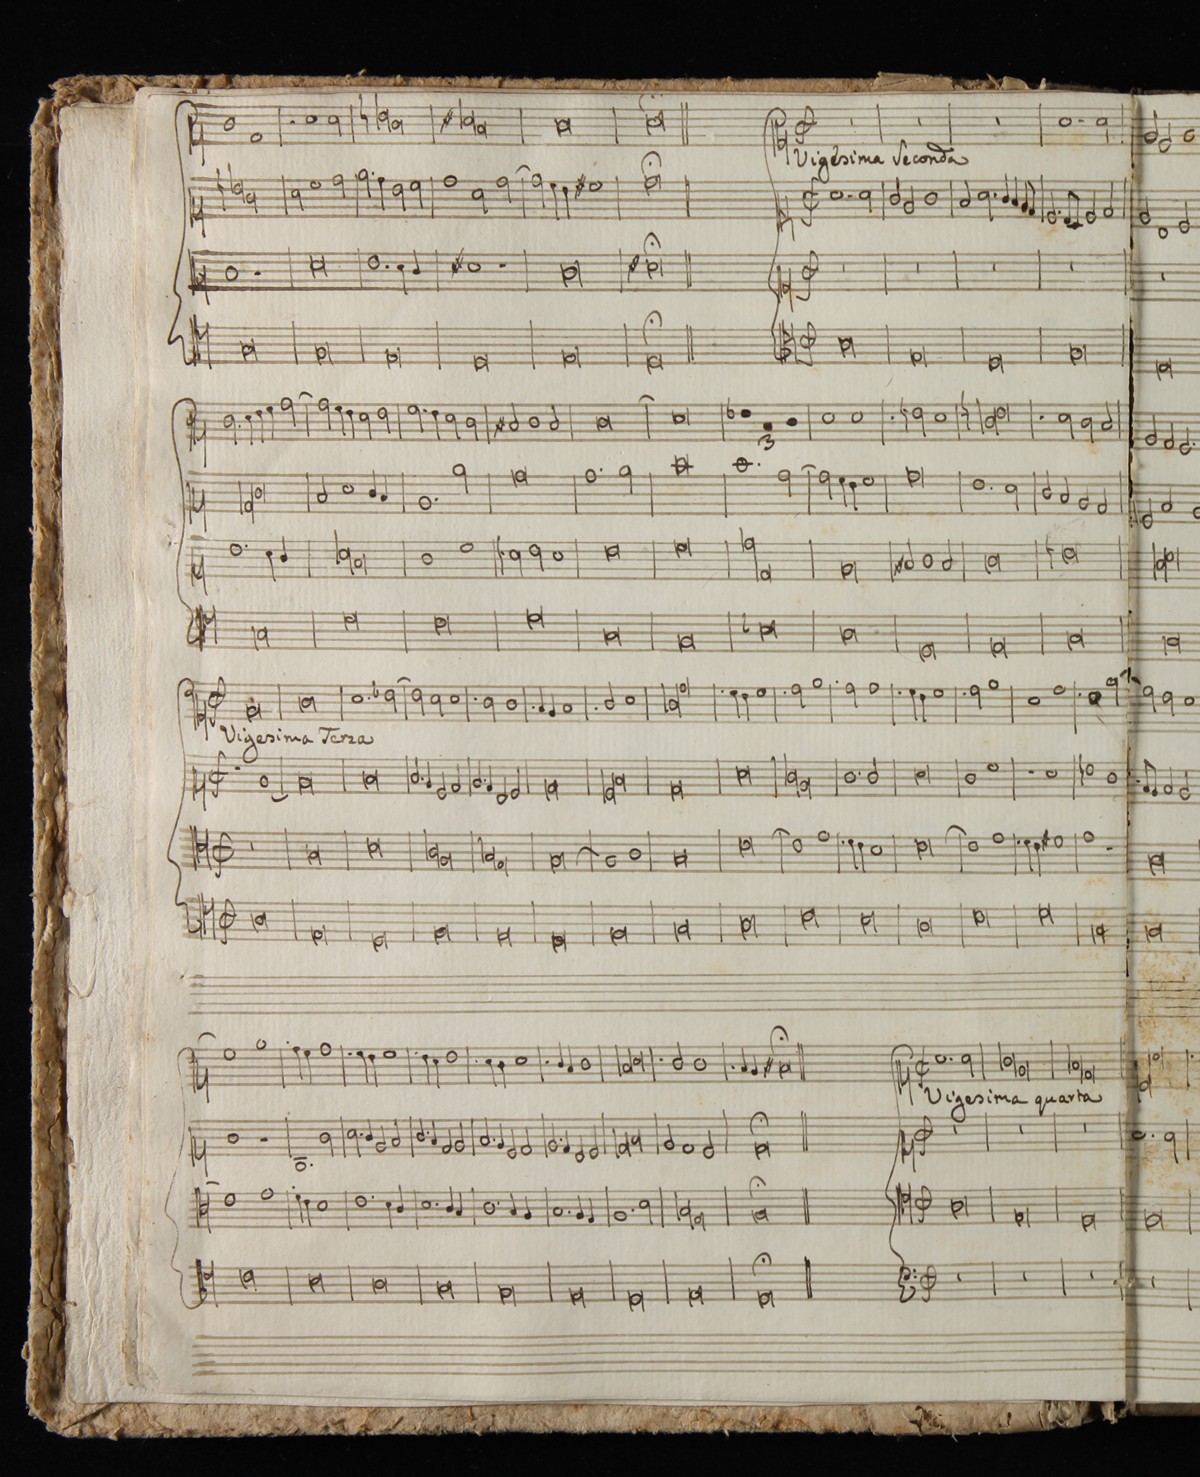 Vigesima seconda
3
Vigesima Terza
Vigesima quarta